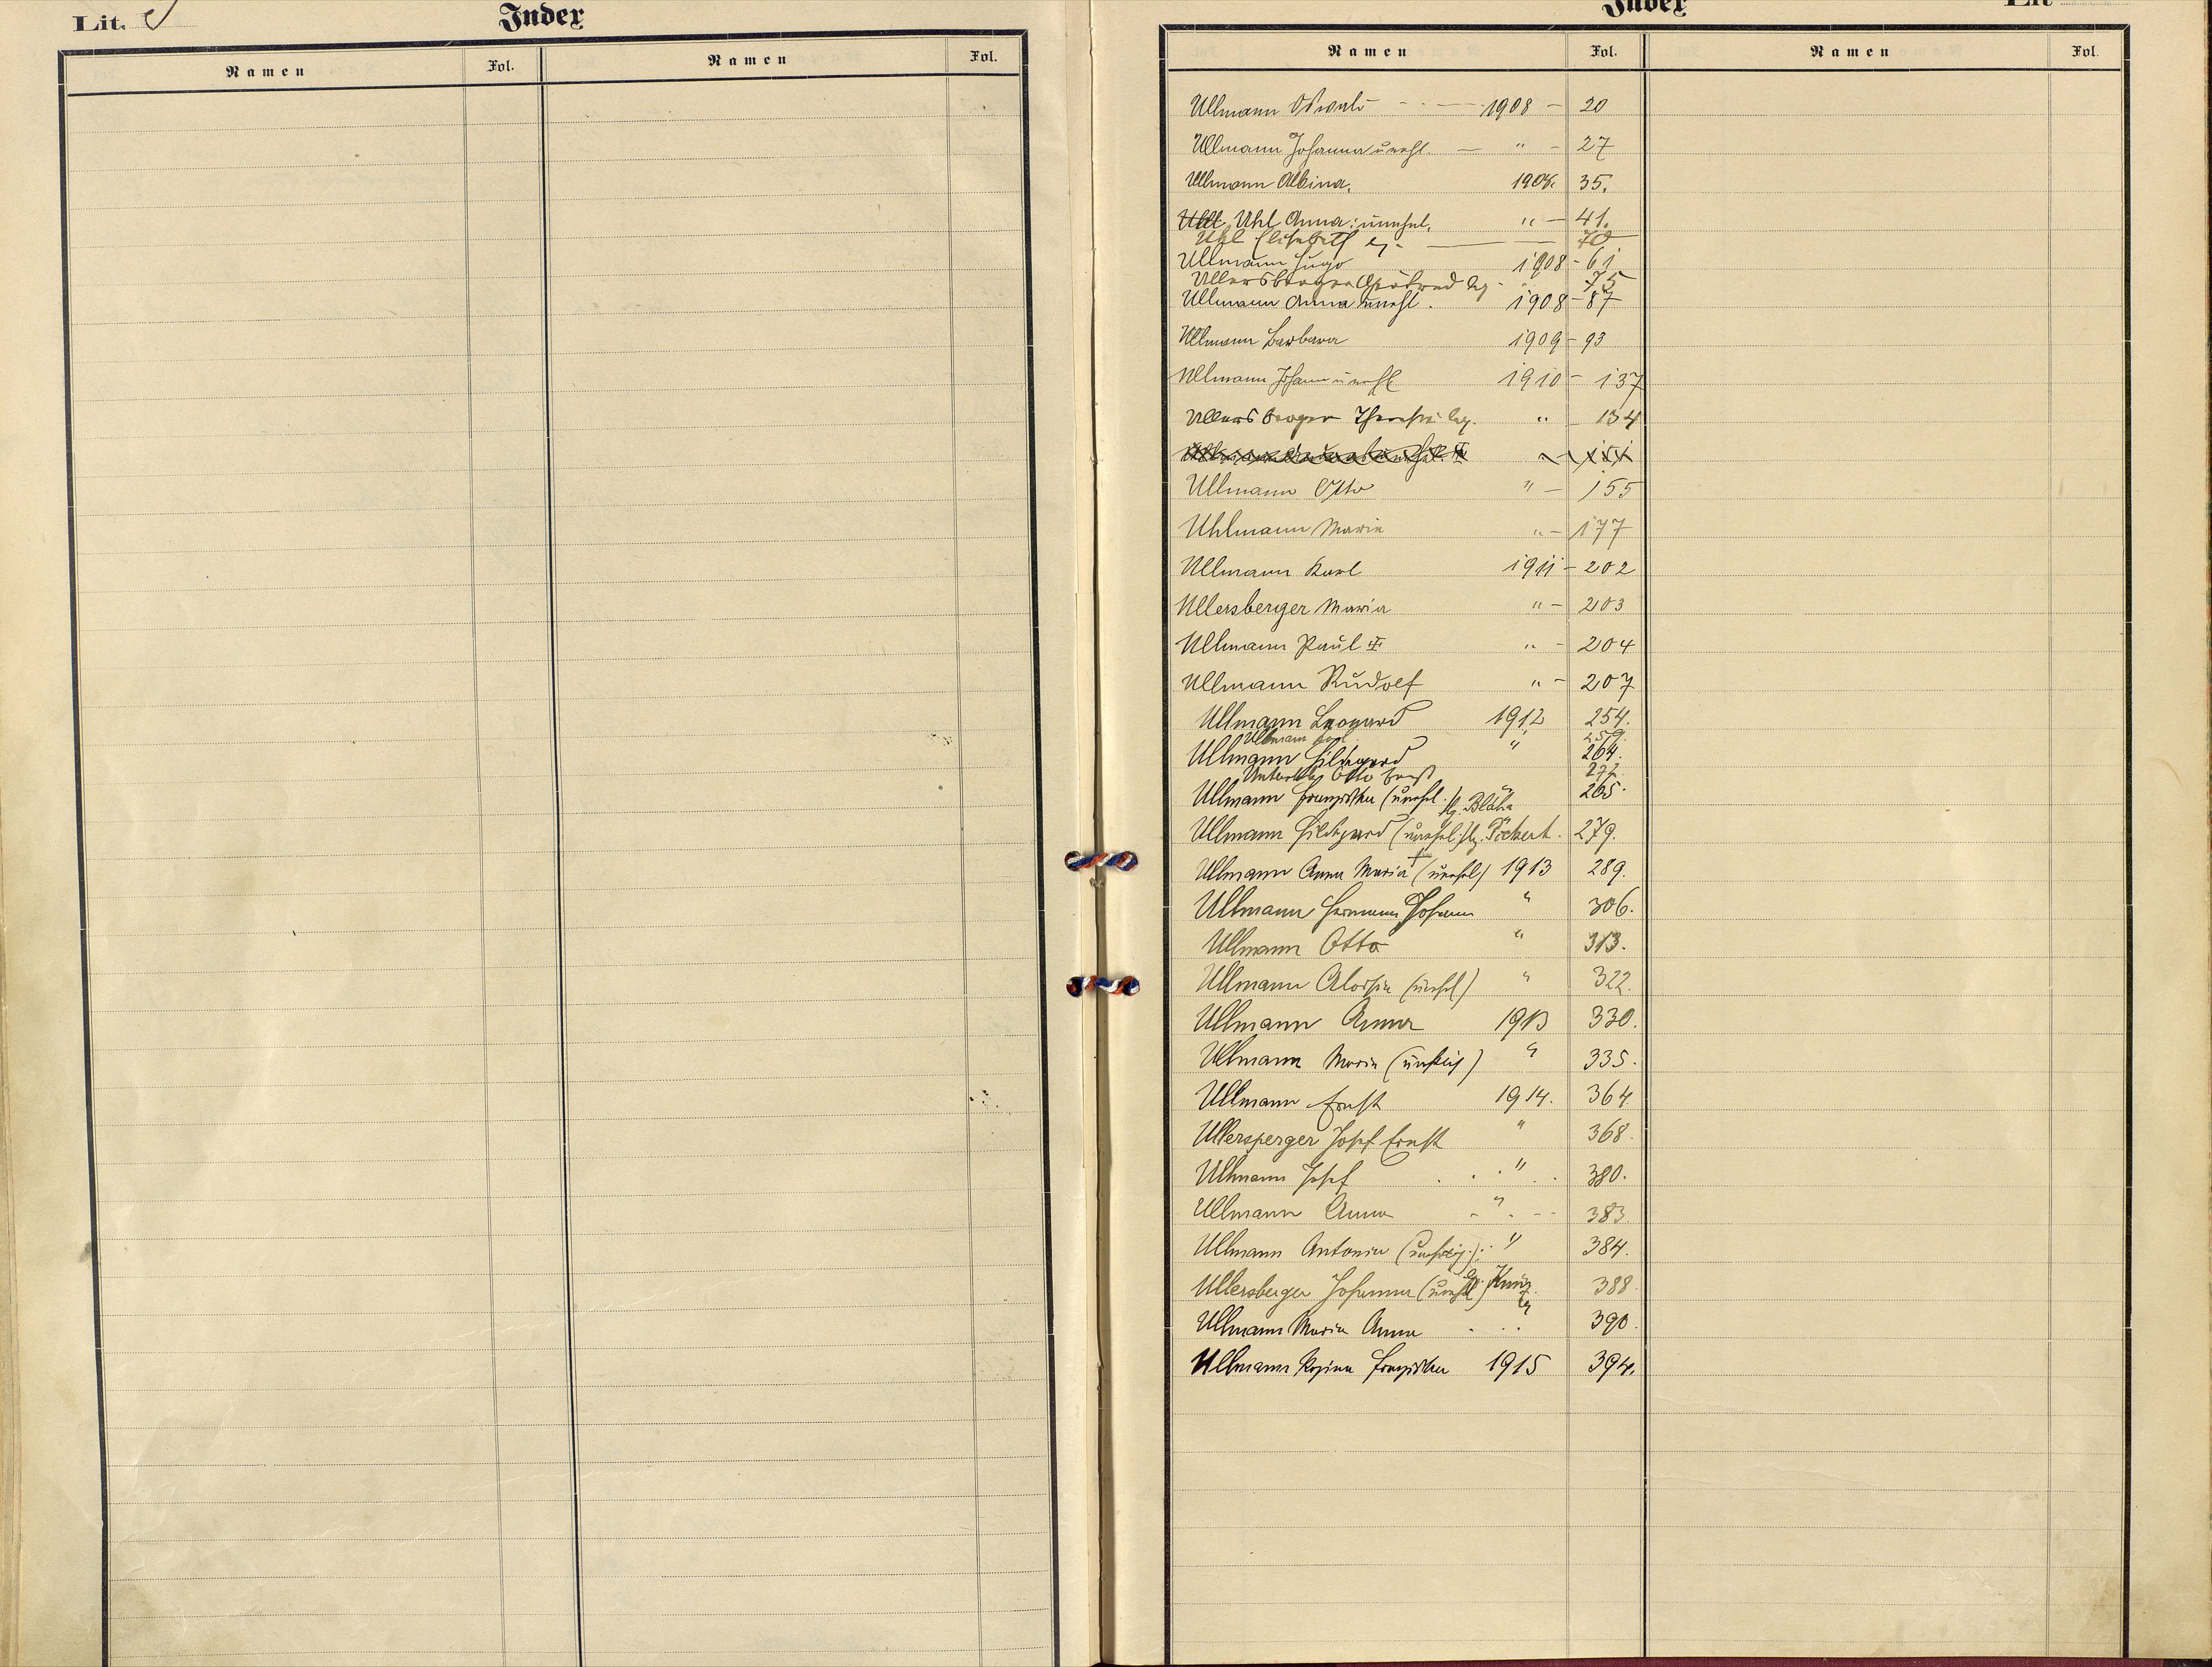 Lit. Index
Namen Fol. Namen Fol.
Index Lit
Namen Fol. Namen Fol.
Ullmann Oswald - - - 1908 - 20
Ullmann Johanna unehl. - " - 27
Ullmann Albina. 1908. 35.
Uhl Anna: unehel. " - 41.
Uhl Elisabeth 70
Ullmann Hugo 1908 - 61
Ullersberger 75
Ullmann Anna unehl. 1908 - 87
Ullmann Barbara 1909 - 93
Ullmann Johann unehl 1910 - 137
Ullersberger Theresia leg. " - 134
151
Ullmann Otto " - 155
Uhlmann Marie " - 177
Ullmann Karl 1911 - 202
Ullersberger Maria " - 203
Ullmann Paul " - 204
Ullmann Rudolf " - 207
Ullmann Leopard 1912 254.
Ullmann 259.
Ullmann Hildegard " 264.
Otto Ernst 272.
Ullmann Franziska (unehel.) lg. Bláha " 265.
Ullmann Hildegard (unehel.) lg. Töckert. 279.
Ullmann Anna Maria † (unehel) 1913 289.
Ullmann Hermann Johann " 306.
Ullmann Otto " 313.
Ullmann Aloisia (unehl) " 322.
Ullmann Anna 1913 330.
Ullmann Maria (unehlich) " 335.
Ullmann Ernst 1914. 364.
Ullersperger Josef Ernst " 368.
Ullmann Josef " 380.
Ullmann Anna " 383.
Ullmann Antonia " 384.
Ullersberger Johanna (unehel) 388
Ullmann Maria Anna 390.
Ullmann Rosina Franziska 1915 394.